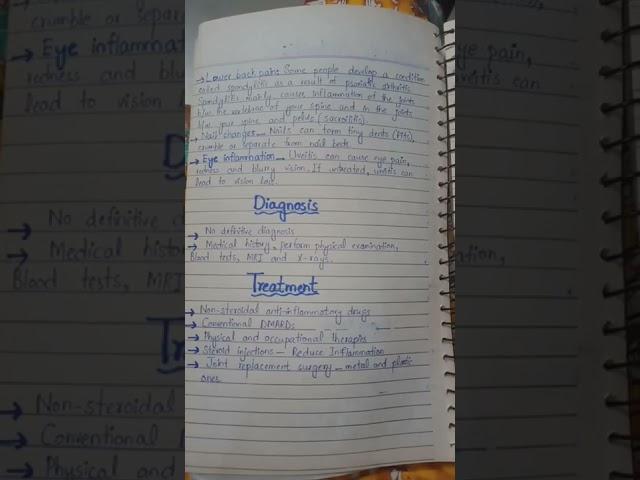 → Lower back pain: Some people develop a condition
called spondylitis as a result of psoriatic arthritis.
Spondylitis mainly causes inflammation of the joints
b/w the vertebrae of your spine and in the joints
b/w your spine and pelvis (sacroiliitis).
→ Nail changes - Nails can form tiny dents (pits),
crumble or separate from nail beds.
→ Eye inflammation - Uveitis can cause eye pain,
redness and blurry vision. If untreated, uveitis can
lead to vision loss.
Diagnosis
→ No definitive diagnosis
→ Medical history - perform physical examination,
Blood tests, MRI and X-rays.
Treatment
→ Non-steroidal anti-inflammatory drugs
→ Conventional DMARDs
→ Physical and occupational therapies
→ Steroid injections - Reduce Inflammation
→ Joint replacement surgery - metal and plastic
ones